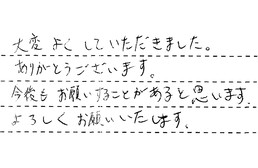 大変よくしていただきました。
ありがとうございます。
今後も お願いすることがあると思います.
よろしくお願いいたします.